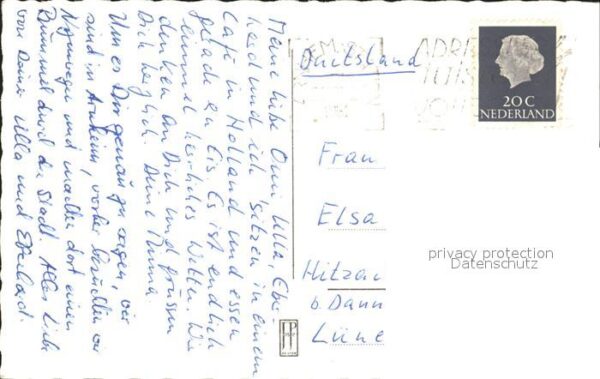 Meine liebe Omi, Ulla, Eber-
hard und ich sitzen in einem
Café in Holland und essen
gerade ein Eis. Es ist endlich
einmal herrliches Wetter. Wir
denken an Dich und grüssen
Dich herzlich. Deine Mama.
Um es Dir genau zu sagen, wir
sind in Arnheim, vorher besuchten wir
Nijmwegen und machten dort einen
Bummel durch die Stadt. Alles Liebe
von Deiner Ulla und Eberhard.
Duitsland
ADRE
20 C
NEDERLAND
Frau
Elsa
Hitzac
b. Dann
Lüne
privacy protection
Datenschutz